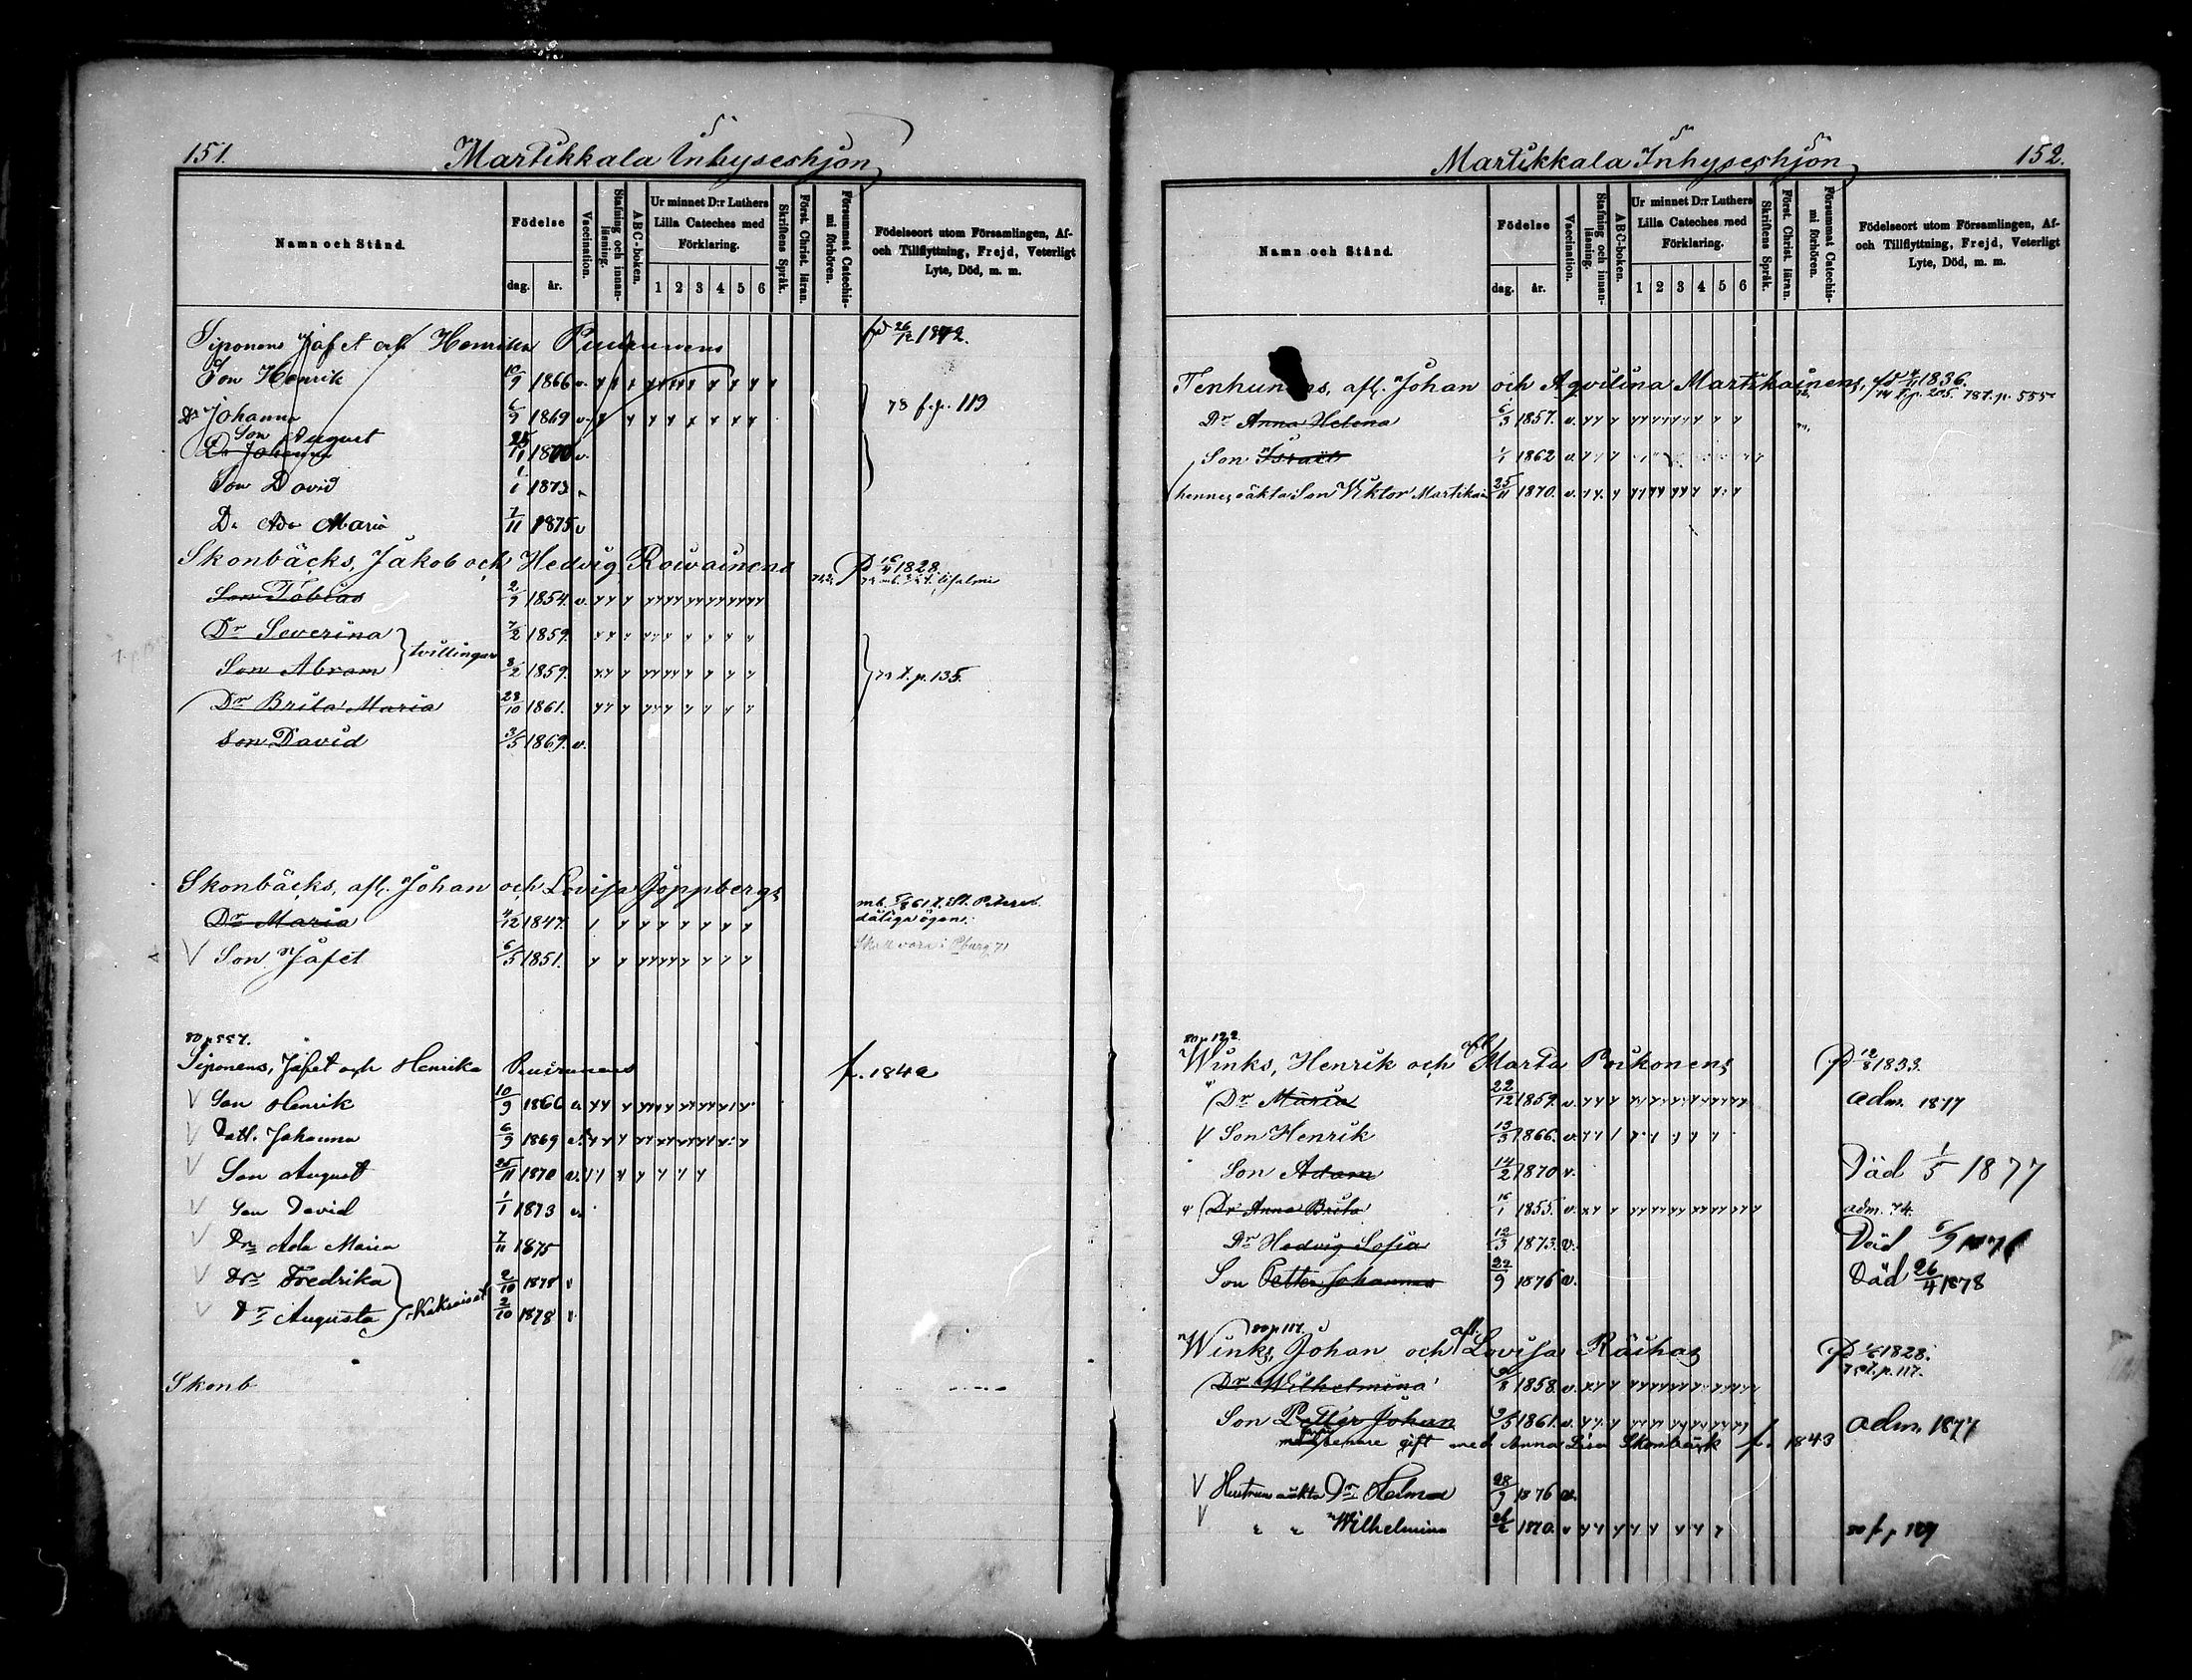 151.
Martikkala Inhyseshjon
Namn och Stånd.
Födelse
dag.
år.
Vaccination.
Stafning och innan-läsning.
ABC-boken.
Ur minnet D:r Luthers Lilla Cateches med Förklaring.
1 2 3 4 5 6
Skriftens Språk.
Först. Christ. läran.
Försummat Catechis-mi förhören.
Födelseort utom Församlingen, Af-
och Tillflyttning, Frejd, Veterligt
Lyte, Död, m. m.
Siponens Jafet och Henrika
Son Henrik 10/9 1866 v.
Dr Johanna 6/9 1869 v. 78 f.p. 113
Son August
Dr Johanna
Son David 1/1 1873
Dr Ada Maria 7/11 1875 v
Skonbäcks, Jakob och Hedvig Rowainens 1828.
Son Tobias 2/9 1854. v.
Dr Severina 7/2 1859.
tvillingar
Son Abram 8/2 1859. t. p. 135.
Dr Brita Maria 28/10 1861.
Son David 3/5 1869. v.
Skonbäcks, afl. Johan och Lovisa Jöppbergs
Dr Maria 4/12 1847. dåliga ögon.
V Son Jafet 6/5 1851.
80 p 557.
Siponens, Jafet och Henrika f. 1842
V Son Henrik 10/9 1866 v
V Dott. Johanna 6/9 1869 v.
V Son August 25/11 1870 v.
V Son David 1/1 1873 v.
V Dr Ada Maria 7/11 1875
V Dr Fredrika 2/10 1878 v
Kaksoiset
V Dr Augusta 2/10 1878 v.
Skonb
Martikkala Inhyseshjon
152.
Namn och Stånd.
Födelse
dag.
år.
Vaccination.
Stafning och innan-läsning.
ABC-boken.
Ur minnet D:r Luthers Lilla Cateches med Förklaring.
1 2 3 4 5 6
Skriftens Språk.
Först. Christ. läran.
Försummat Catechis-mi förhören.
Födelseort utom Församlingen, Af-
och Tillflyttning, Frejd, Veterligt
Lyte, Död, m. m.
Tenhunens, afl. Johan och Aqvilina Martikainens, 1836.
Dr Anna Helena 6/3 1857. v.
Son Israël 1/1 1862 v.
hennes oäkta Son Viktor Martikain 25/11 1870. v.
80 p 122
Winks, Henrik och afl. Marta Poikonens 12/8 1833.
Dr Maria 22/12 1859. v. adm. 1877
V Son Henrik 13/3 1866. v.
Son Adam 14/2 1870 v. Död 1/5 1877
Dr Anna Brita 16/1 1855. v. adm. 74.
Dr Hedvig Sofia 12/3 1873. v. Död
Son Petter Johannes 22/9 1876 v. Död 26/4 1878
80 p 117.
Winks, Johan och afl. Lovisa Räihas 1828.
p. 117.
Dr Wilhelmina 1858. v.
Son Petter Johan 9/5 1861. v. adm. 1877
gift med Anna Lisa Skonbäck f. 1843
V Hustruns oäkta Dr Helma 28/9 1876 v.
V Wilhelmina 1870. v